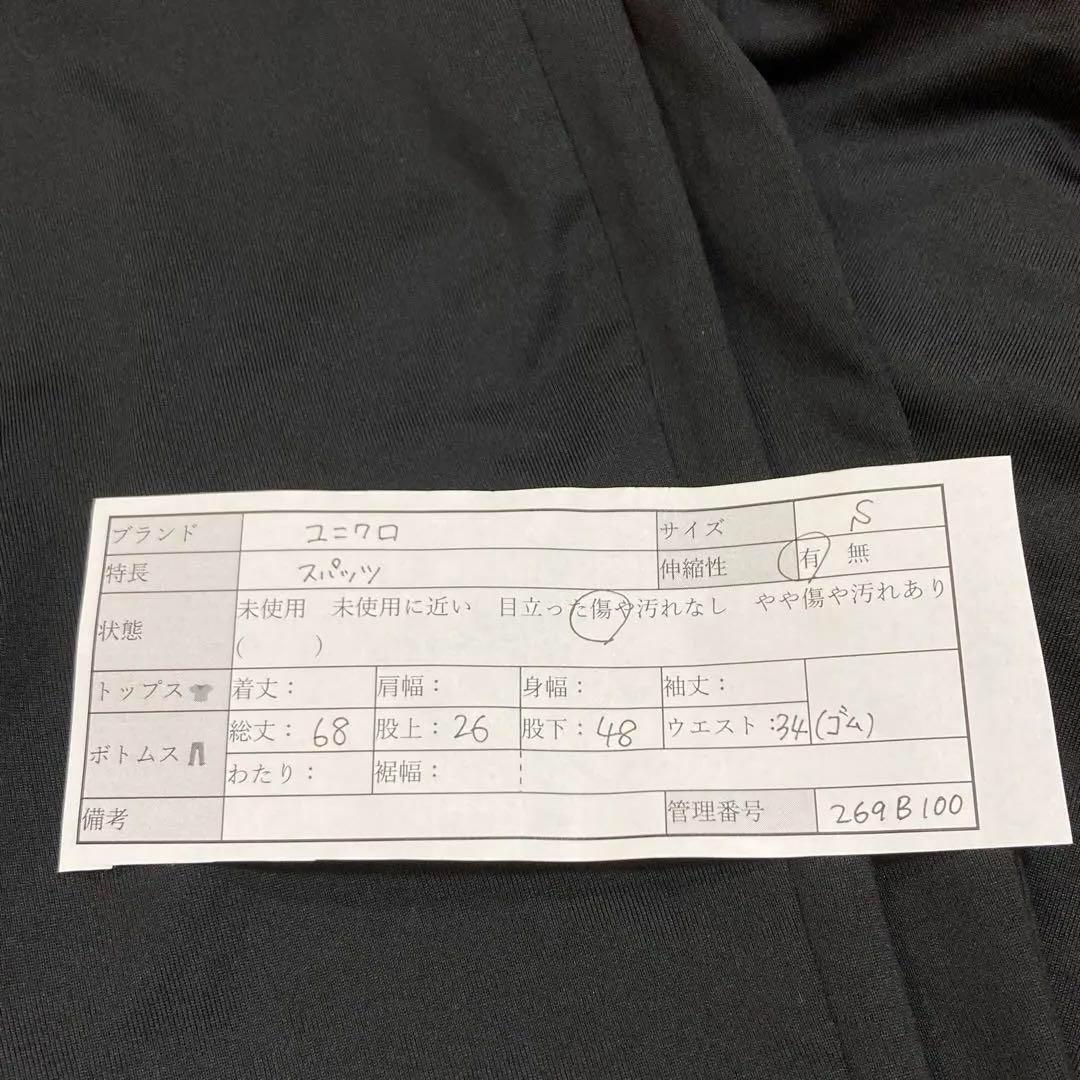 ブランド ユニクロ サイズ S
特長 スパッツ 伸縮性 有 無
状態 未使用 未使用に近い 目立った傷や汚れなし やや傷や汚れあり
( )
トップス 着丈: 肩幅: 身幅: 袖丈:
ボトムス 総丈:68 股上:26 股下:48 ウエスト:34(ゴム)
わたり: 裾幅:
備考 管理番号 269B100